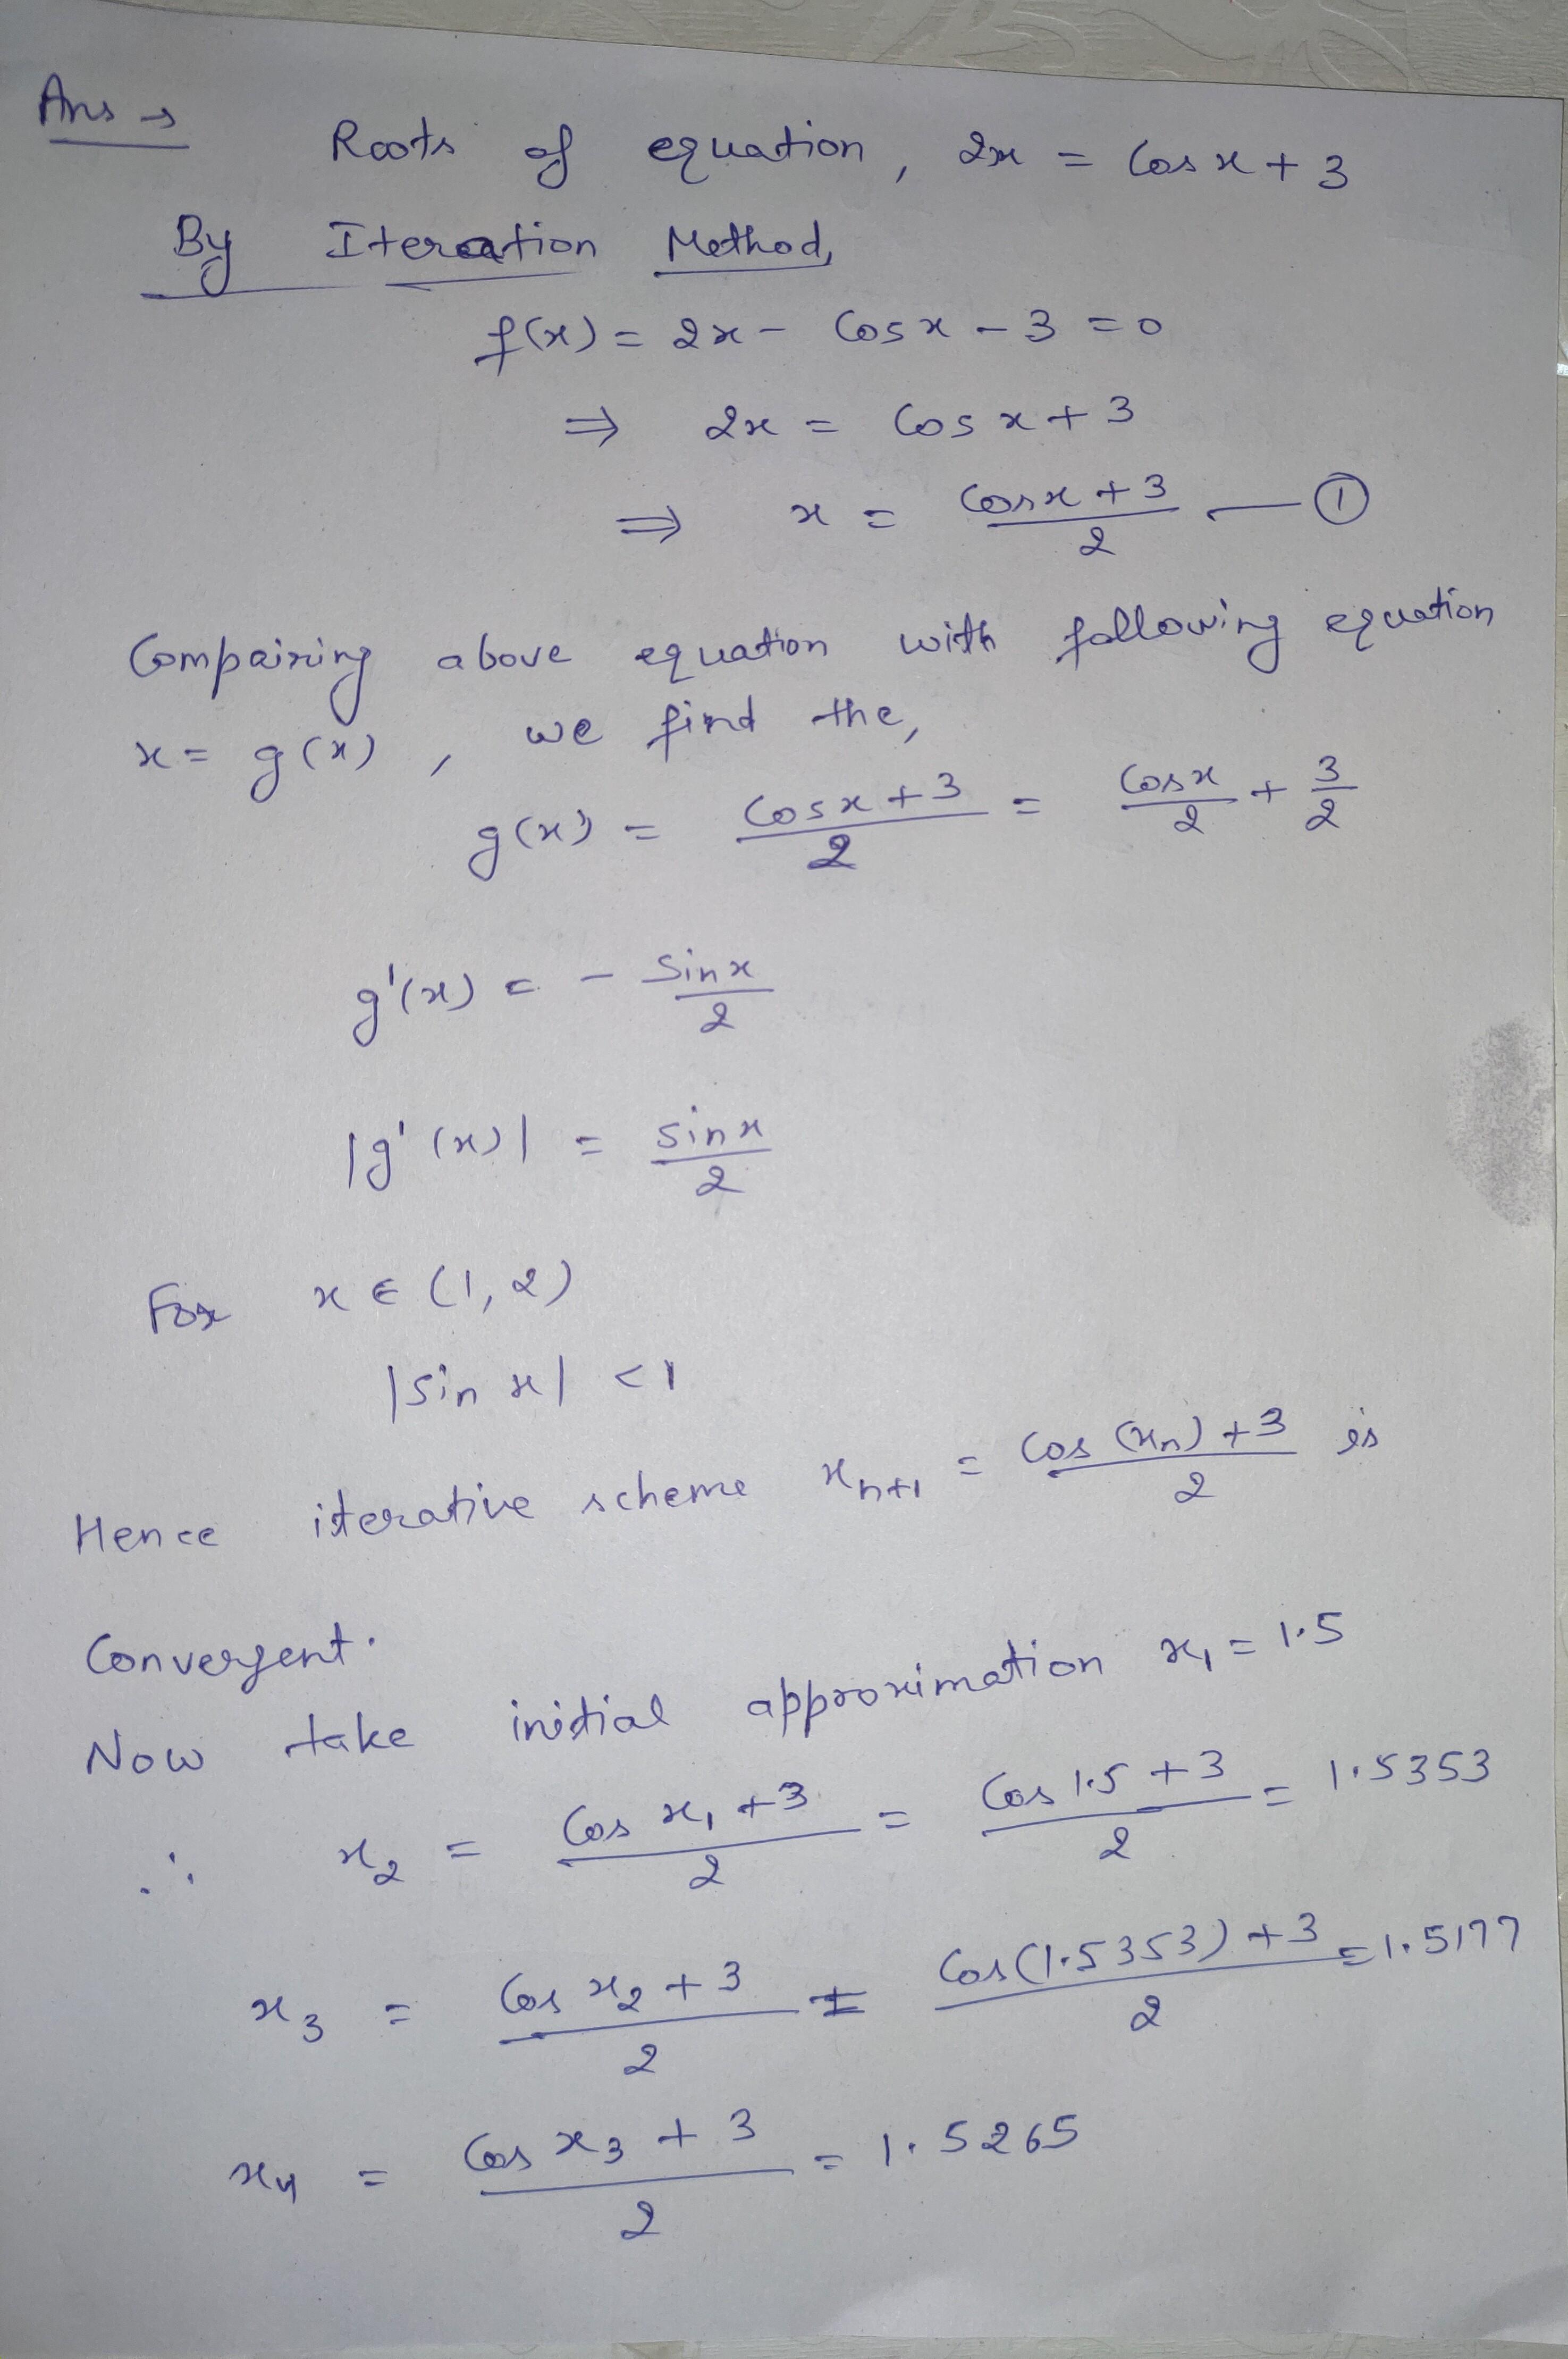 Ans →
Roots of equation, 2x = Cos x + 3
By Iteration Method,
f(x) = 2x - Cos x - 3 = 0
⇒ 2x = Cos x + 3
⇒ x = (Cos x + 3)/2 — ①
Compairing above equation with following equation
x = g(x), we find the,
g(x) = (Cos x + 3)/2 = Cos x/2 + 3/2
g'(x) = - Sin x/2
|g'(x)| = Sin x/2
For x ∈ (1, 2)
|Sin x| < 1
Hence iterative scheme xₙ₊₁ = (Cos (xₙ) + 3)/2 is
Convergent.
Now take initial approximation x₁ = 1.5
∴ x₂ = (Cos x₁ + 3)/2 = (Cos 1.5 + 3)/2 = 1.5353
x₃ = (Cos x₂ + 3)/2 = (Cos(1.5353) + 3)/2 = 1.5177
x₄ = (Cos x₃ + 3)/2 = 1.5265